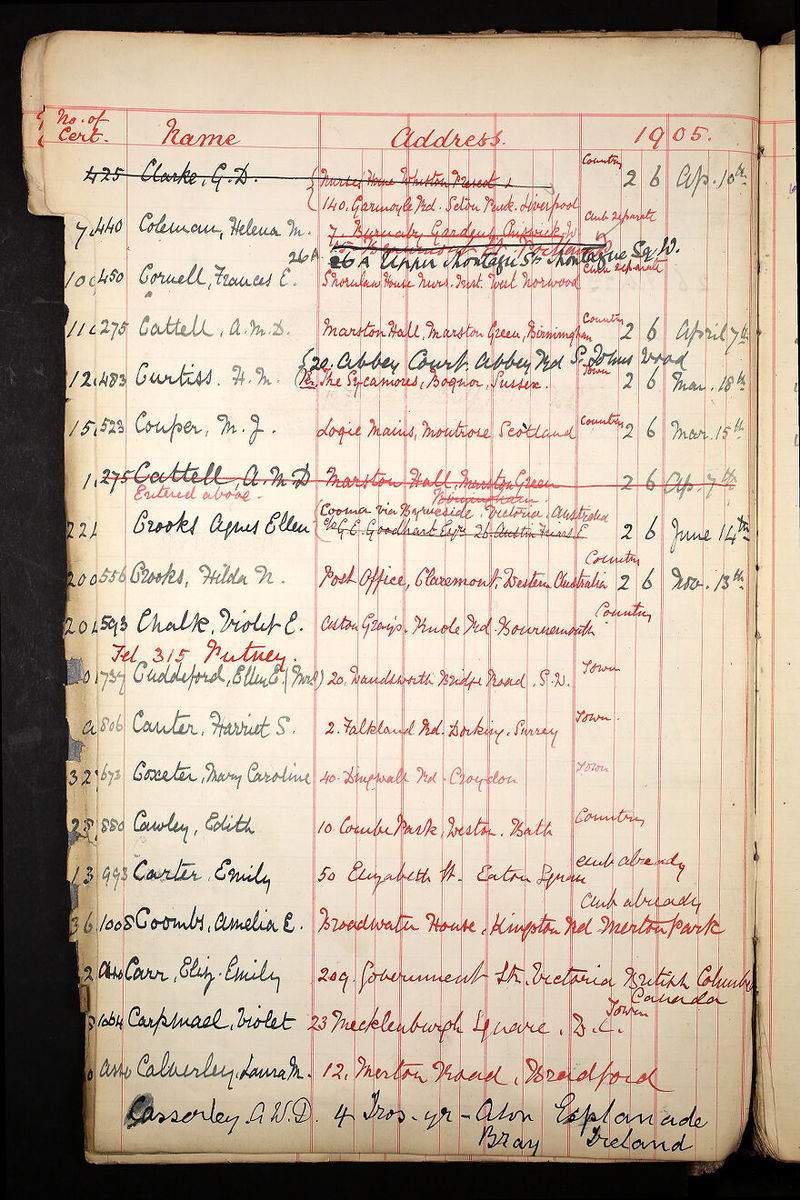 No. of Cert. Name Address. 1905.
425 Clarke, G. D. Nurses' Home Whiston Prescot Country 2 6 Ap. 10th
140. Garmoyle Rd. Sefton Park. Liverpool
440 Coleman, Helena M. 7. Burnaby Gardens, Chiswick, W. Club separate
26A 26A Upper Montagu St. Montague Sq. W.
450 Cornell, Frances E. House Nurs. Inst. West Norwood Club separate
275 Cattell, A. M. D. Marston Hall, Marston Green, Birmingham Country 2 6 April 7th
20. Abbey Court. Abbey Rd St. Johns Wood
483 Curtiss. H. M. The Sycamores, Bognor, Sussex. Town 2 6 Mar. 18th
523 Couper, M. J. Logie Mains, Montrose Scotland Country 2 6 Mar. 15th
275 Cattell, A. M. D Marston Hall, Marston Green 2 6 Ap. 7th
Entered above. Birmingham.
Cooma via Byrneside. Victoria, Australia
221 Crooks Agnes Ellen c/o G. E. Goodhart Esqre 26 Austin Friars E 2 6 June 14th
556 Crooks, Hilda N. Post Office, Claremont, Western Australia Country 2 6 Nov. 13th
593 Chalk, Violet E. Knole Rd. Bournemouth Country
Tel. 315 Putney.
737 Cuddeford, Ellen E. (Mrs) 20, Wandsworth Bridge Road. S.W. Town
806 Canter, Harriet S. 2. Falkland Rd. Dorking, Surrey Town.
673 Coxeter, Mary Caroline 40. Dingwall Rd. Croydon Town
880 Cawley, Edith 10. Combe Park, Weston. Bath Country
993 Carter, Emily 50 Elizabeth St. Eaton Square club already
1008 Coombs, Amelia E. Broadwater House, Kingston Rd. Merton Park club already
Carr, Eliz. Emily 209. Government St. Victoria British Columbia
Canada
1064 Carpmael, Violet 23 Mecklenburgh Square. W.C. Town
Calverley, Laura M. 12, Merton Road, Bradford
Casserley. A. W. D. 4 Esplanade
Bray Ireland